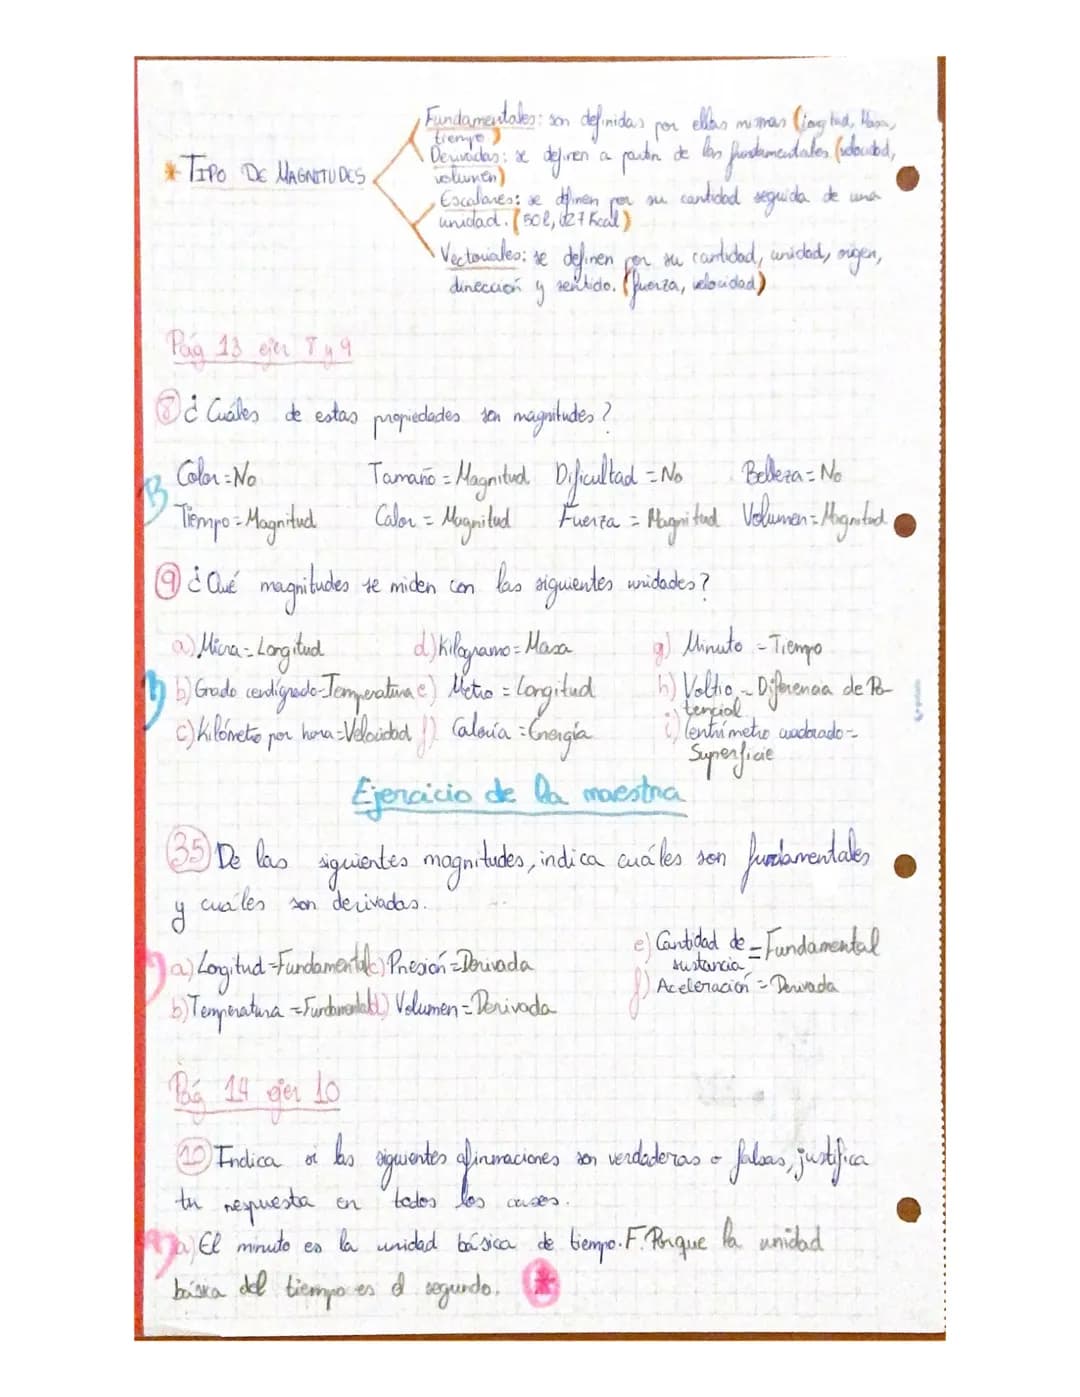 Fundamentales: son definidas por ellas mismas (longitud, Masa,
tiempo)
* TIPO DE MAGNITUDES
Derivadas: se definen a partir de las fundamentales (velocidad,
volumen)
Escalares: se definen por su cantidad seguida de una
unidad. (50l, 627 Kcal)
Vectoriales: se definen por su cantidad, unidad, origen,
dirección y sentido. (fuerza, velocidad)
Pág 13 ejer 8 y 9
8 ¿Cuáles de estas propiedades son magnitudes?
Color = No Tamaño = Magnitud Dificultad = No Belleza = No
B
Tiempo = Magnitud Calor = Magnitud Fuerza = Magnitud Volumen = Magnitud
9 ¿Qué magnitudes se miden con las siguientes unidades?
a) Micra = Longitud d) Kilogramo = Masa g) Minuto = Tiempo
b) Grado centígrado = Temperatura e) Metro = Longitud h) Voltio = Diferencia de Po-
tencial
c) Kilómetro por hora = Velocidad f) Caloría = Energía i) Centrímetro cuadrado =
Superficie
Ejercicio de la maestra
35 De las siguientes magnitudes, indica cuáles son fundamentales
y cuáles son derivadas.
a) Longitud = Fundamental c) Presión = Derivada e) Cantidad de = Fundamental
sustancia
b) Temperatura = Fundamental d) Volumen = Derivada f) Aceleración = Derivada
Pág 14 ejer 10
10 Indica si las siguientes afirmaciones son verdaderas o falsas, justifica
tu respuesta en todos los casos.
a) El minuto es la unidad básica de tiempo. F. Porque la unidad
básica del tiempo es el segundo. *